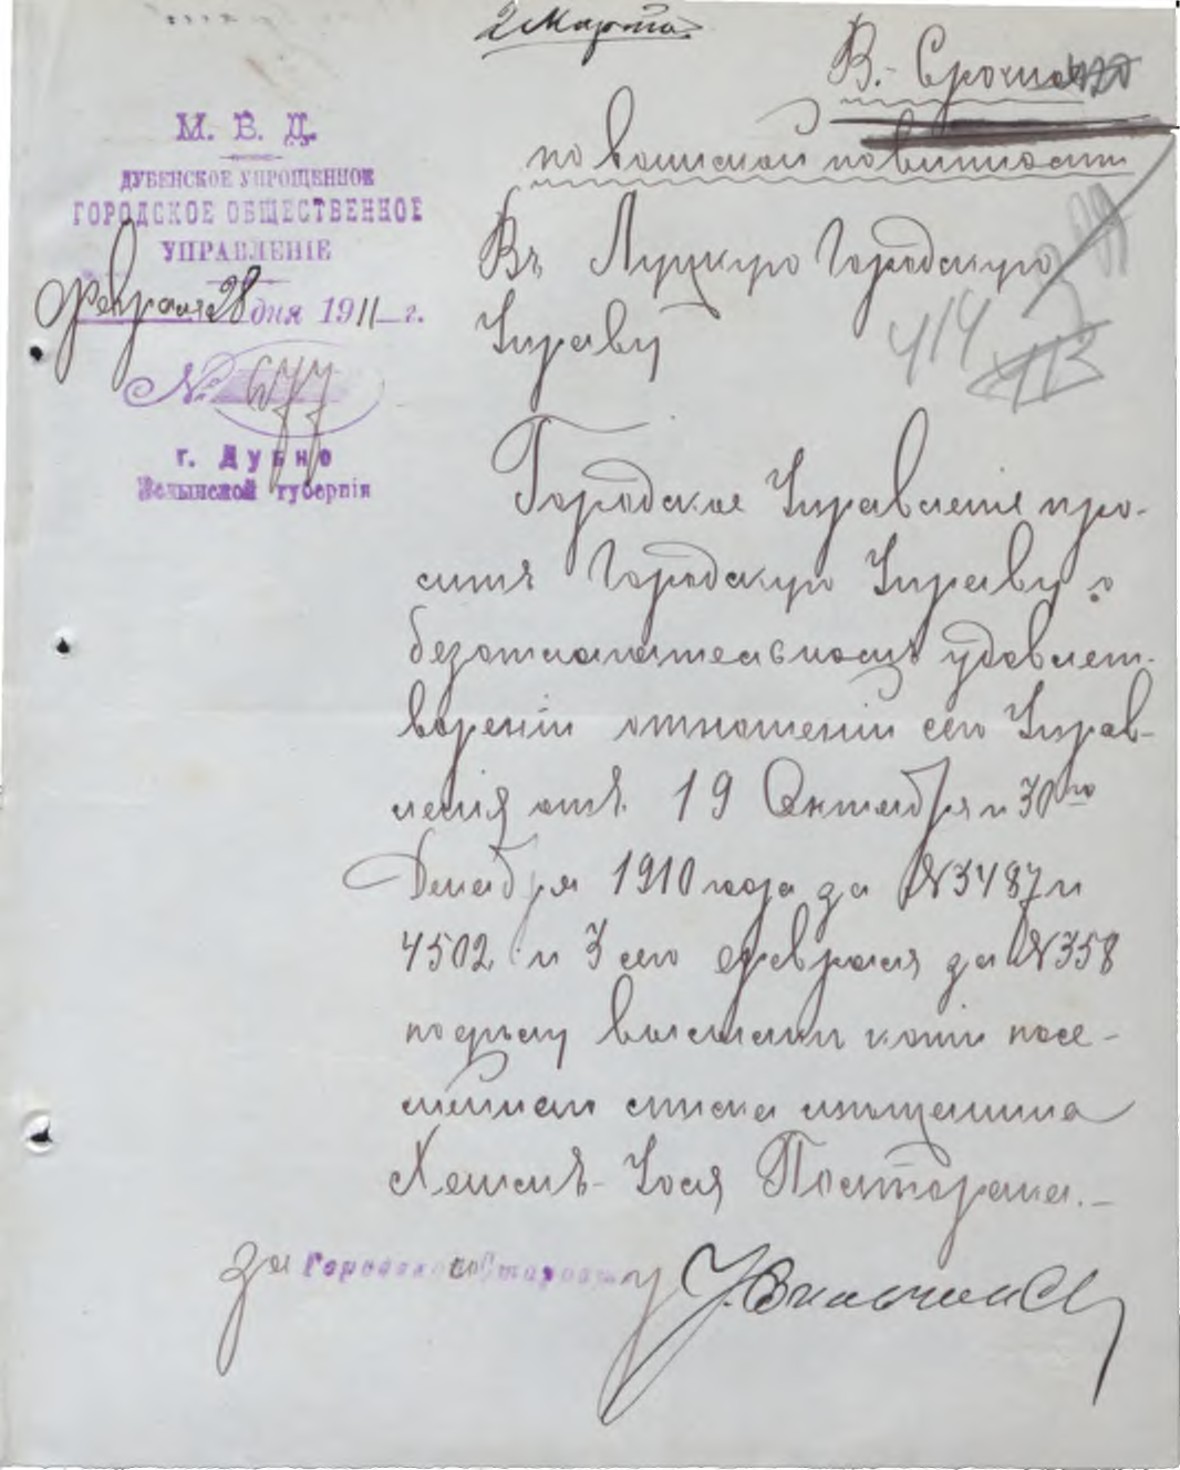 2 Марта
В. Срочно
по воинской повинности
М. В. Д.
ДУБЕНСКОЕ УПРОЩЕННОЕ
ГОРОДСКОЕ ОБЩЕСТВЕННОЕ
УПРАВЛЕНІЕ
Февраля 28 дня 1911 г.
№ 677
г. Дубно
Волынской губерніи
Въ Луцкую Городскую
Управу
414
113
Городское Управленіе про-
ситъ Городскую Управу о
безотлагательномъ удовлет-
вореніи отношеній сего Управ-
ленія отъ 19 Октября и 30го
Декабря 1910 года за №3487 и
4502 и 3 сего февраля за №358
по дѣлу высылки копіи посе-
мейнаго списка мѣщанина
Хаимъ-
за Городского Старосту